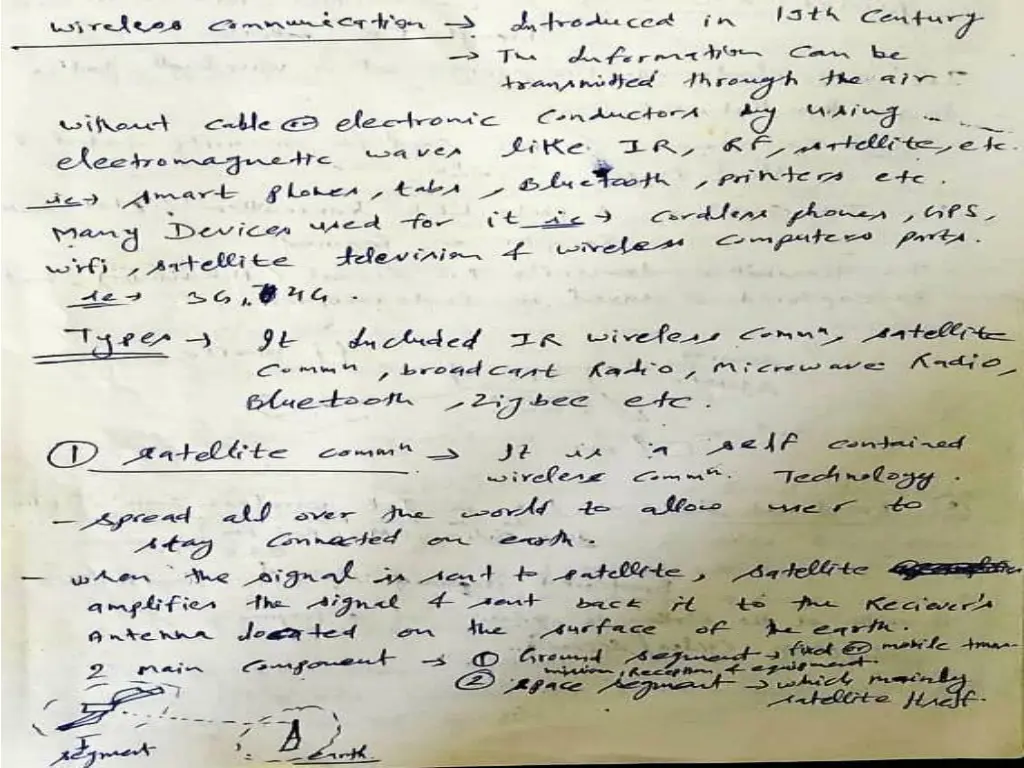 wireless communication → Introduced in 19th Century
→ The Information Can be
transmitted through the air
without cable or electronic conductors by using
electromagnetic waves like IR, RF, satellite, etc.
ie→ smart phones, tabs, Bluetooth, printers etc.
Many Devices used for it ie → Cordless phones, GPS,
wifi, satellite television & wireless computers parts.
ie → 3G, 4G.
Types → It Included IR wireless Commⁿ, satellite
Commⁿ, broadcast Radio, Microwave Radio,
Bluetooth, Zigbee etc.
① satellite commⁿ → It is a self contained
wireless Commⁿ. Technology.
- spread all over the world to allow user to
stay Connected on earth.
- when the signal is sent to satellite, satellite
amplifies the signal & sent back it to the Reciever's
Antenna located on the surface of the earth.
2 main component → ① Ground segment → fixed or mobile trans-
mission, Reception & equipment.
② space segment → which mainly
satellite itself.
segment
earth